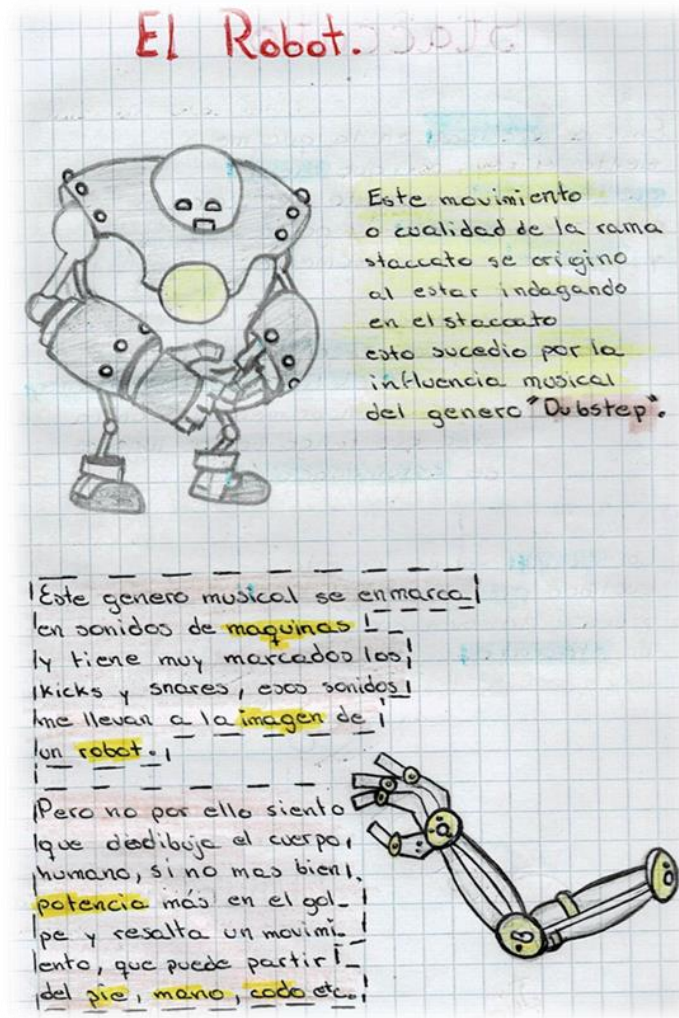 El Robot.
Este movimiento
o cualidad de la rama
staccato se origino
al estar indagando
en el staccato
esto sucedio por la
influencia musical
del genero "Dubstep".
Este genero musical se enmarca
en sonidos de maquinas
y tiene muy marcados los
kicks y snares, esos sonidos
me llevan a la imagen de
un robot.
Pero no por ello siento
que desdibuja el cuerpo
humano, si no mas bien
potencia más en el gol-
pe y resalta un movimi-
ento, que puede partir
del pie, mano, codo etc.